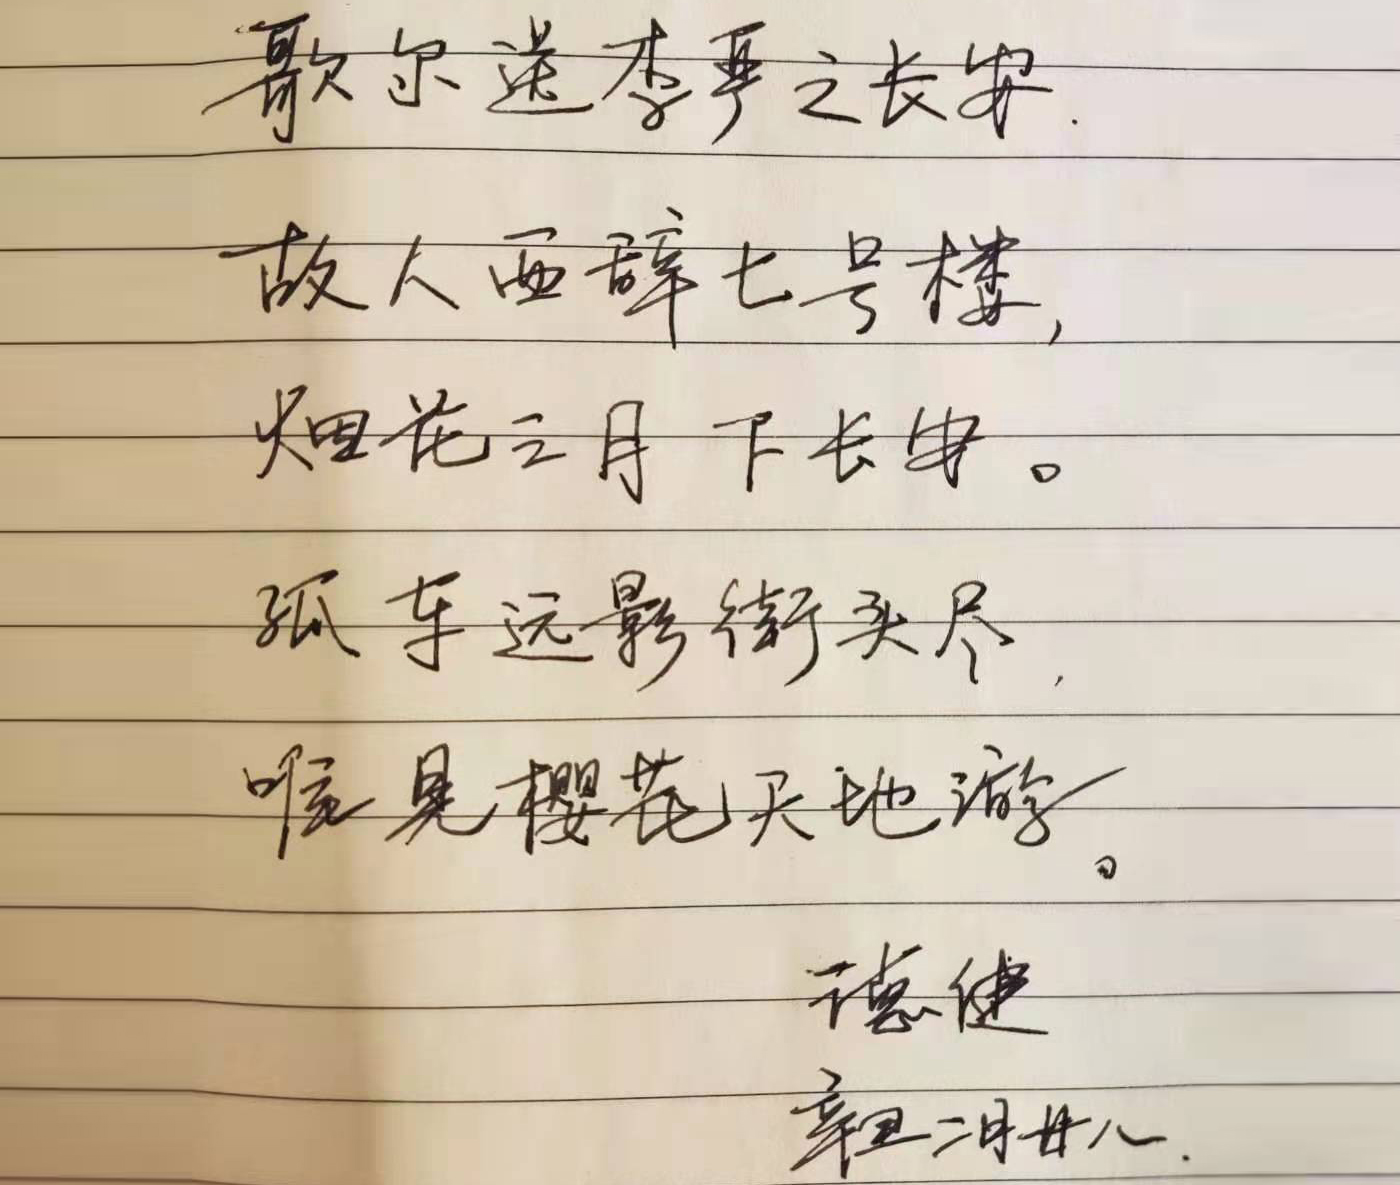 歌尔送李亭之长安.
故人西辞七号楼,
烟花三月下长安。
孤车远影街头尽,
唯见樱花天地游。
德健
辛丑二月廿八.